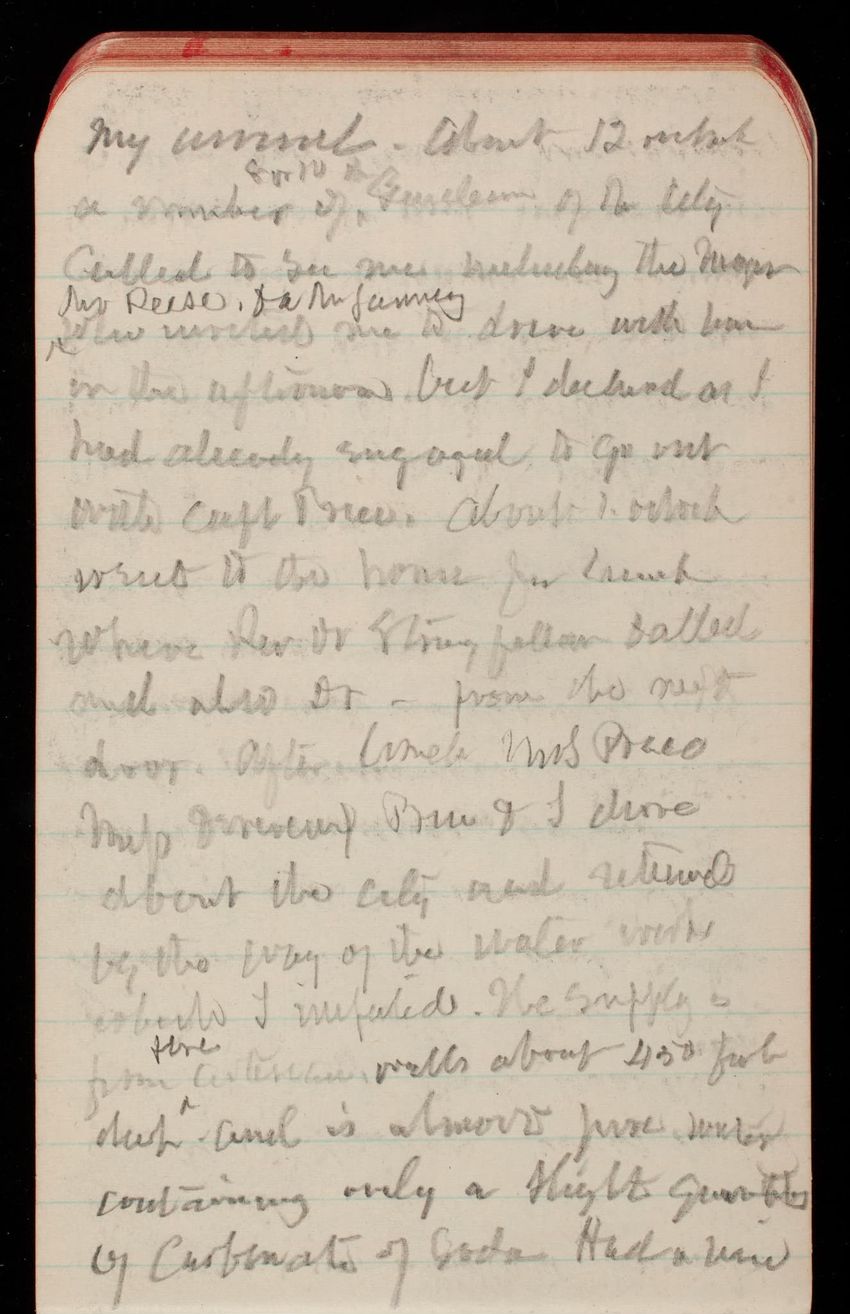 My arrival. About 12 oclock
8 or 10
a number of Gentlemen of the City
Called to see me including the Mayor
Mr Reese.
Who invited me to drive with him
in the afternoon but I declined as I
had already engaged to go out
with Capt Price. About 1. oclock
went to the home for lunch
Where Rev Dr Stringfellow called
and also Dr - from the next
door. After lunch Mrs Price
Miss Price & I drove
about the city and returned
by the way of the water works
which I inspected. The supply is
from artesian wells about 450 feet
deep and is almost pure water
containing only a slight quantity
of Carbonate of Soda Had a